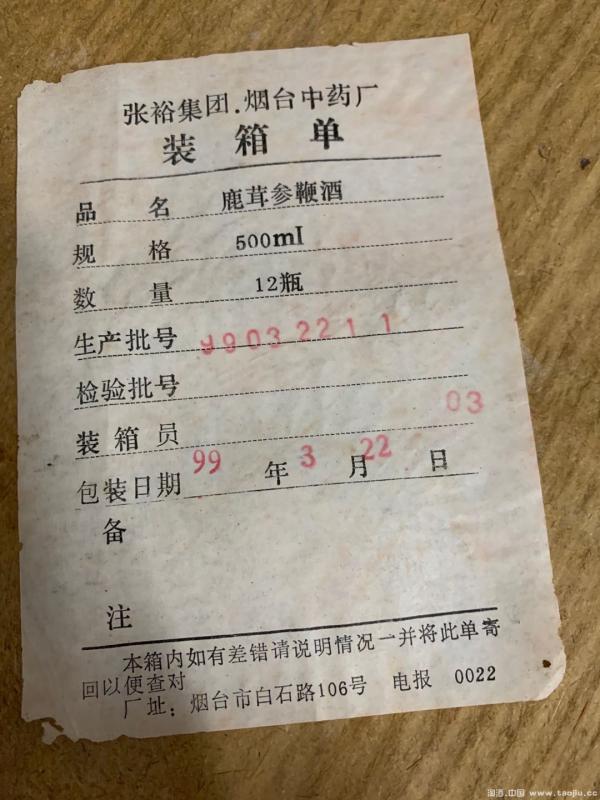 张裕集团.烟台中药厂
装箱单
品名 鹿茸参鞭酒
规格 500ml
数量 12瓶
生产批号 99032211
检验批号
装箱员 03
包装日期 99年3月22日
备
注
本箱内如有差错请说明情况一并将此单寄
回以便查对
厂址：烟台市白石路106号 电报 0022
淘酒.中国 www.taojiu.cc